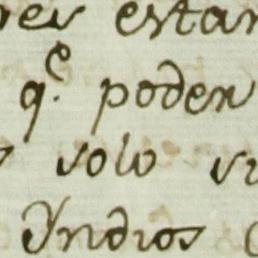 res estan
q.e poden
solo su
Yndios